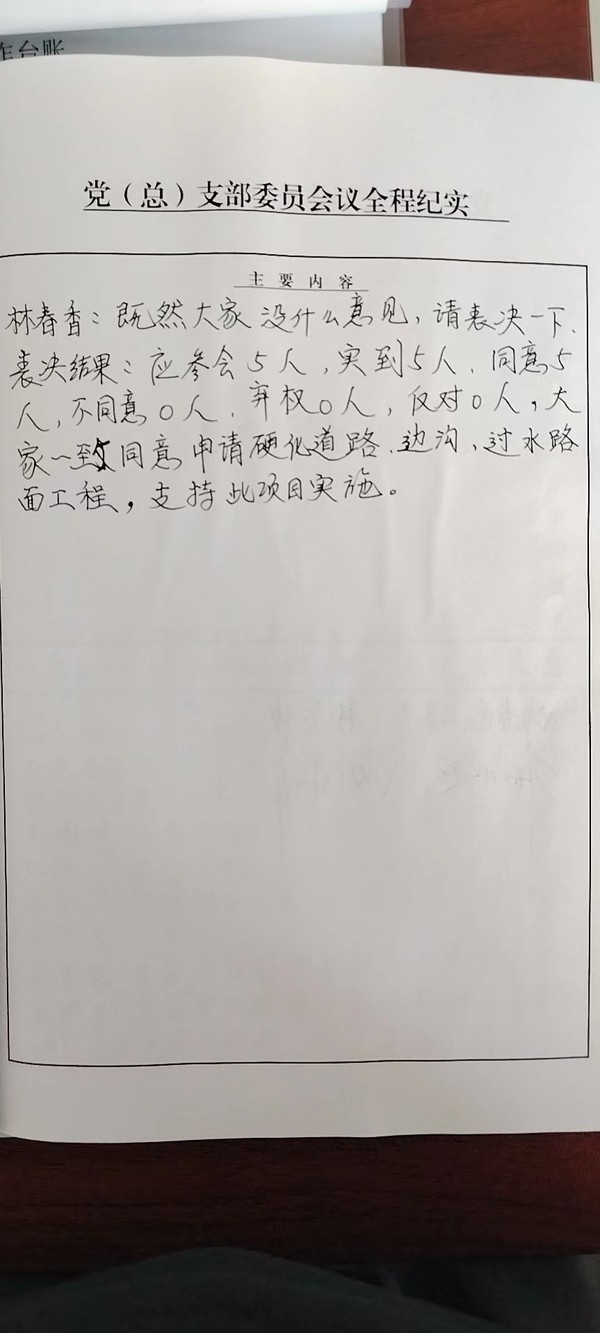 作台账
党（总）支部委员会议全程纪实
主要内容
林春香：既然大家没什么意见，请表决一下.
表决结果：应参会5人，实到5人，同意5
人，不同意0人，弃权0人，仅对0人，大
家一致同意申请硬化道路、边沟、过水路
面工程，支持此项目实施。